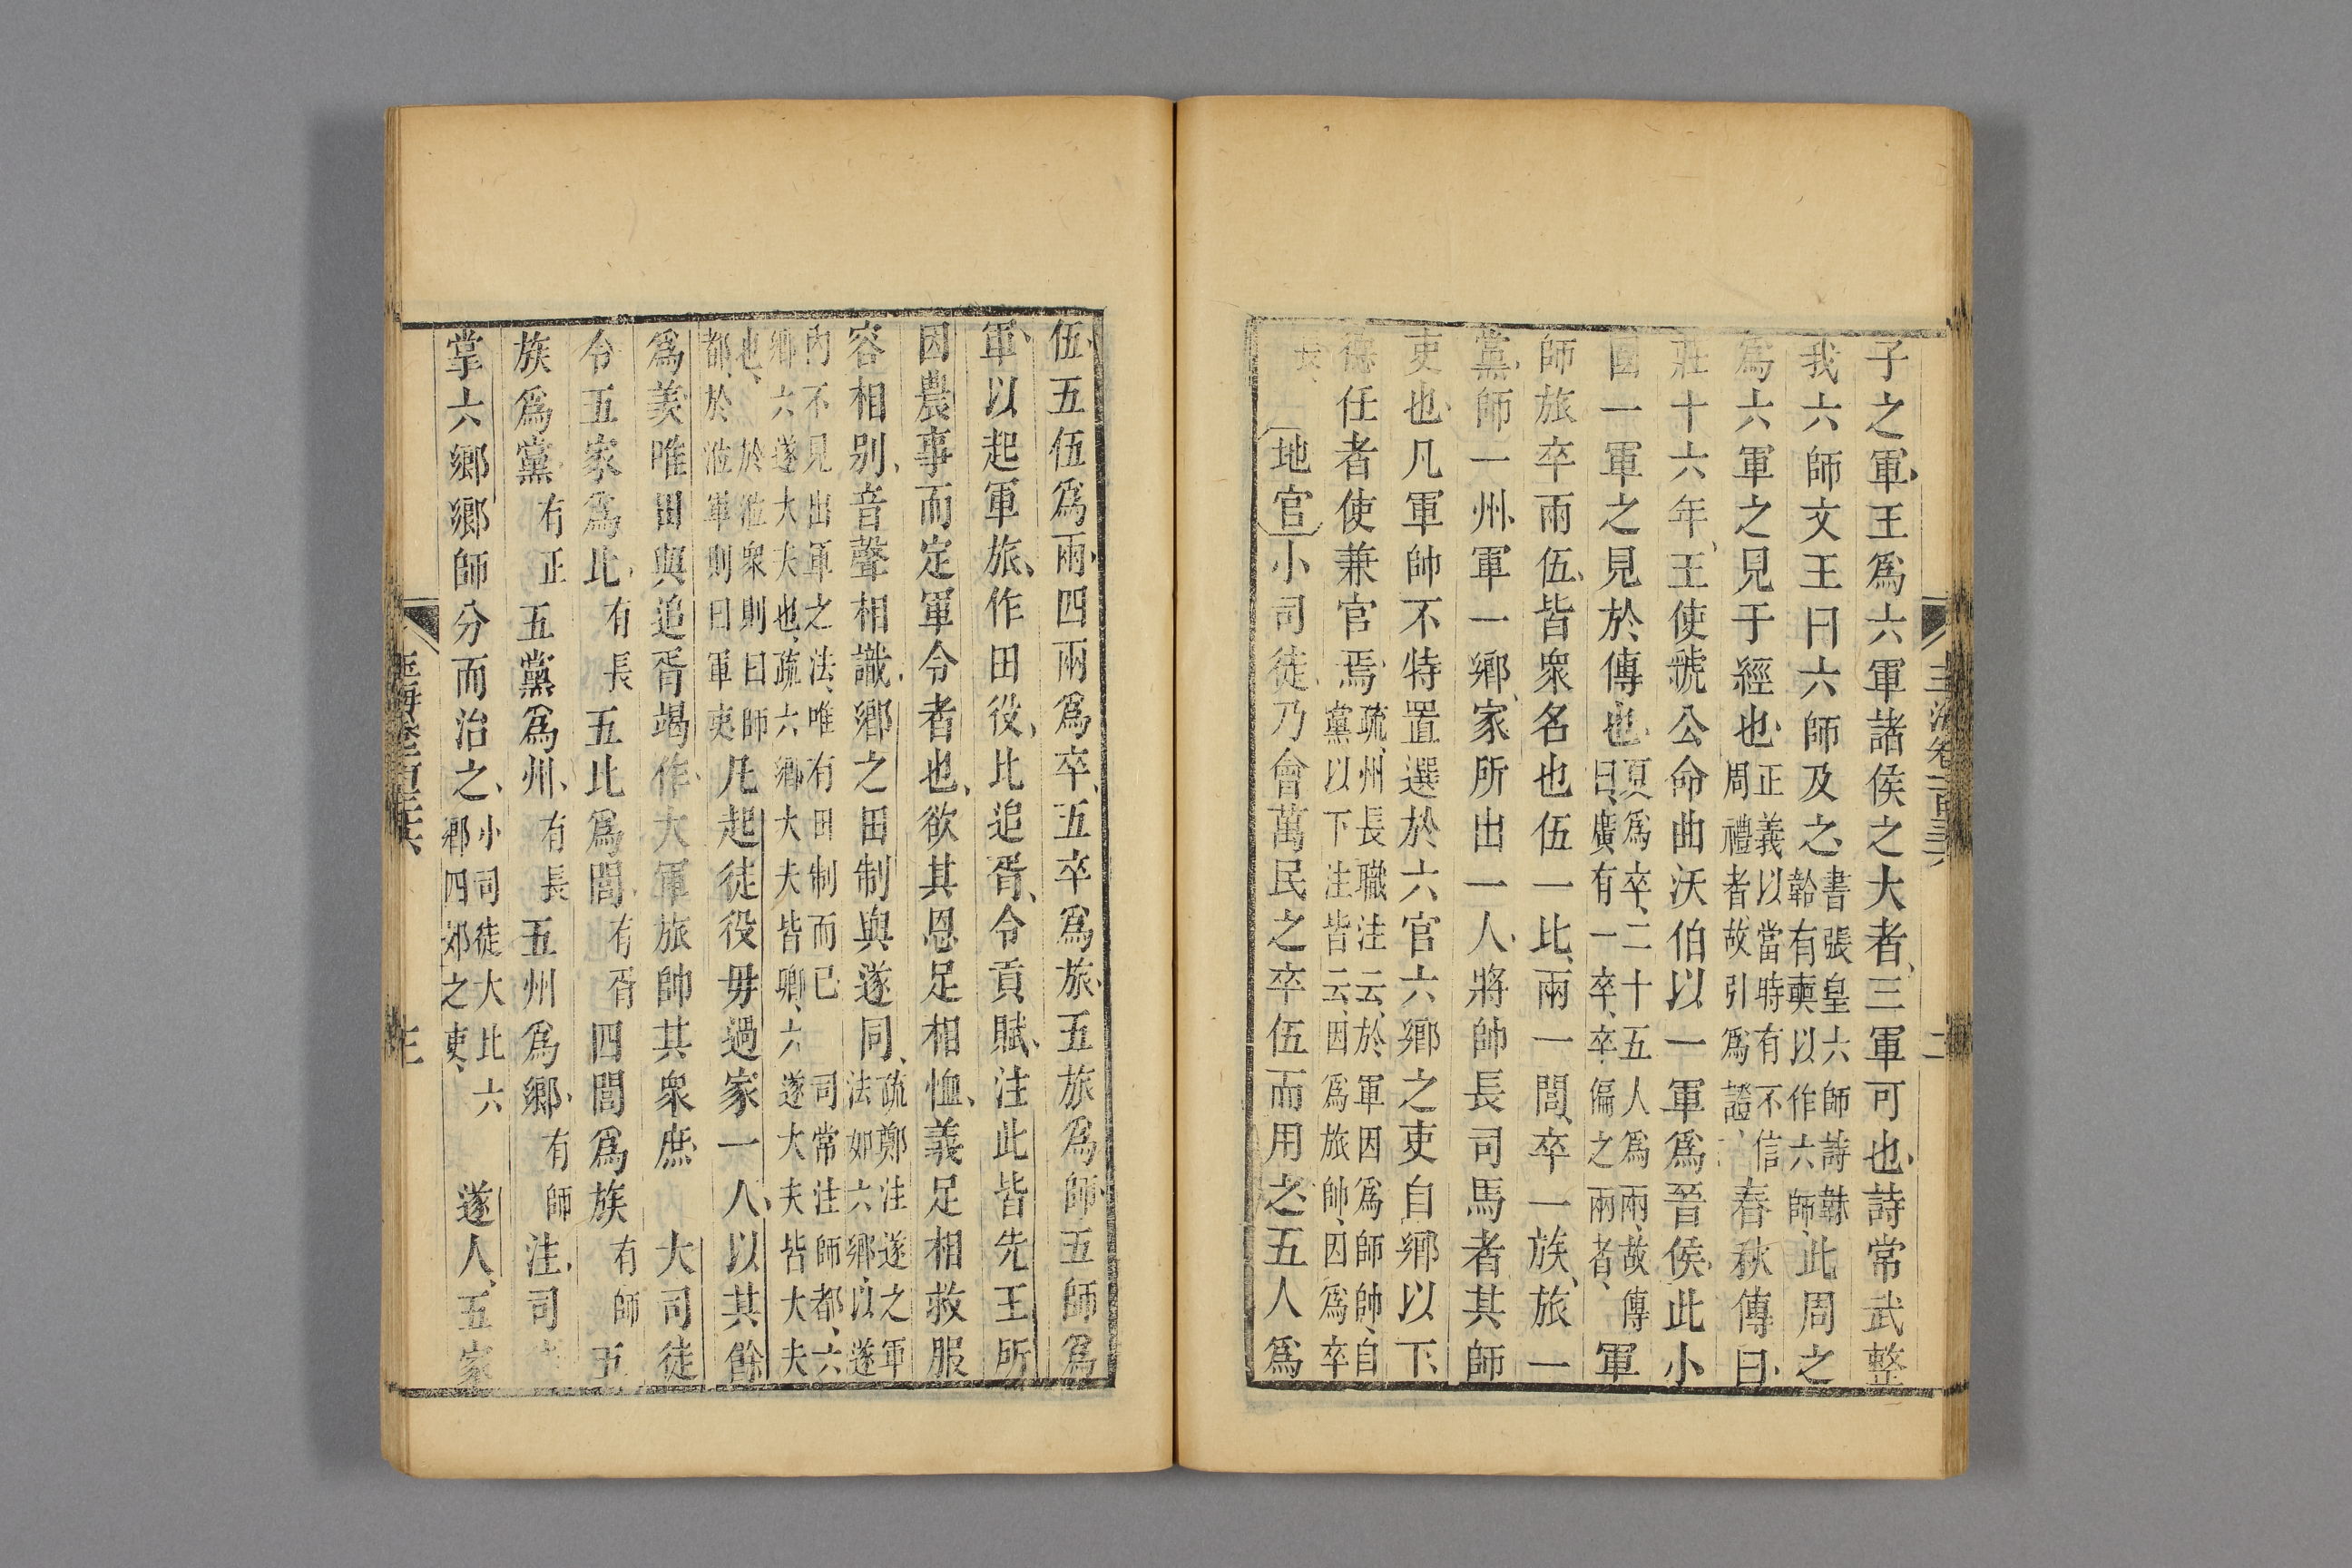 子之軍王爲六軍諸侯之大者三軍可也詩常武整
我六師文王曰六師及之書張皇六師詩韎韐有奭以作六師此周之
爲六軍之見于經也正義以當時有不信周禮者故引爲證春秋傳曰
莊十六年王使虢公命曲沃伯以一軍爲晉侯此小
國一軍之見於傳也百爲卒二十五人爲兩故傳曰廣有一卒卒偏之兩者軍
師旅卒兩伍皆衆名也伍一比兩一閭卒一族旅一
黨師一州軍一鄉家所出一人將帥長司馬者其師
吏也凡軍帥不特置選於六官六鄉之吏自鄉以下
德任者使兼官焉疏州長職注云於軍因爲師帥自黨以下注皆云因爲旅帥因爲卒
長地官小司徒乃會萬民之卒伍而用之五人爲
伍五伍爲兩四兩爲卒五卒爲旅五旅爲師五師爲
軍以起軍旅作田役比追胥令貢賦注此皆先王所
因農事而定軍令者也欲其恩足相恤義足相救服
容相別音聲相識鄉之田制與遂同疏鄭注遂之軍法如六鄉以遂
內不見出軍之法唯有田制而已司常注師都六鄉六遂大夫也疏六鄉大夫皆卿六遂大夫皆大夫
也於涖衆則曰師都於涖軍則曰軍吏凡起徒役毋過家一人以其餘
爲羨唯田與追胥竭作大軍旅帥其衆庶 大司徒
令五家爲比有長五比爲閭有胥四閭爲族有師五
族爲黨有正五黨爲州有長五州爲鄉有師注司
掌六鄉鄉師分而治之小司徒大比六鄉四郊之吏 遂人五家